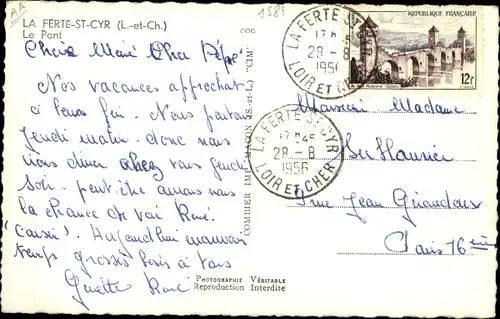 AA
1584
LA FERTÉ-ST-CYR (L.-et-Ch.)
Le Pont
Chère Mémé Cher Pépé
Nos vacances approchent
à leurs fin. Nous partons
jeudi matin donc nous
irons dîner chez vous jeudi
soir. peut-être aurons nous
la chance de voir René.
Aujourd'hui mauvais
temps grosses bises à tous
Guette René
COMBIER IMP. MACON (S.-et-L.) "CIM"
LA FERTE-ST-CYR
28-8
1956
LOIR ET CHER
LA FERTE-ST-CYR
17H45
28-8
1956
LOIR ET CHER
REPUBLIQUE FRANÇAISE
12F
Monsieur Madame
9 rue Jean Giraudoux
Paris 16ème
PHOTOGRAPHIE VÉRITABLE
Reproduction Interdite